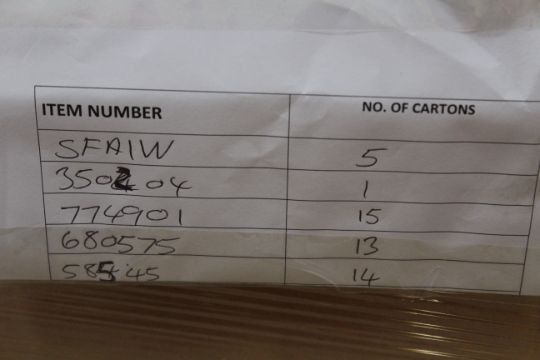 ITEM NUMBER NO. OF CARTONS
SFA1W 5
350204 1
774901 15
680575 13
585545 14